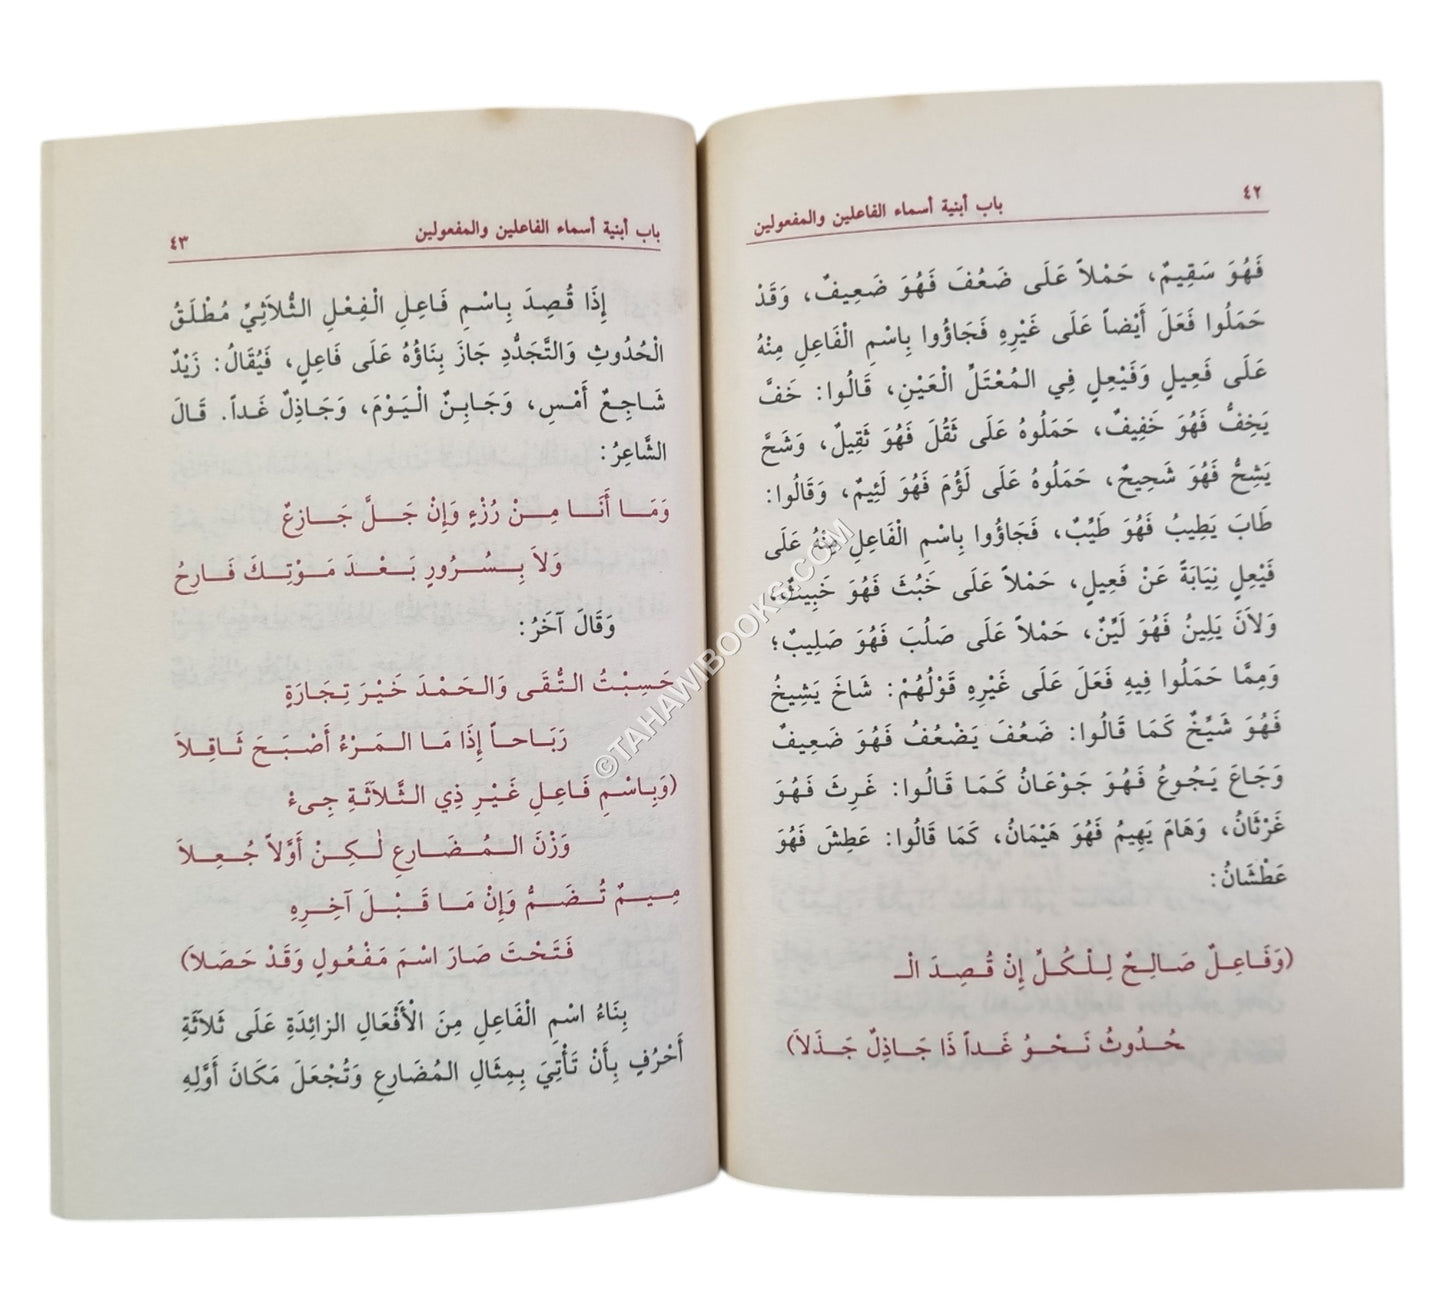 ٤٢ باب أبنية أسماء الفاعلين والمفعولين
فَهُوَ سَقِيمٌ، حَمْلاً عَلَى ضَعُفَ فَهُوَ ضَعِيفٌ، وَقَدْ
حَمَلُوا فَعَلَ أَيْضاً عَلَى غَيْرِهِ فَجَاؤُوا بِاسْمِ الْفَاعِلِ مِنْهُ
عَلَى فَعِيلٍ وَفَيْعِلٍ فِي المُعْتَلِّ الْعَيْنِ، قَالُوا: خَفَّ
يَخِفُّ فَهُوَ خَفِيفٌ، حَمَلُوهُ عَلَى ثَقُلَ فَهُوَ ثَقِيلٌ، وَشَحَّ
يَشِحُّ فَهُوَ شَحِيحٌ، حَمَلُوهُ عَلَى لَؤُمَ فَهُوَ لَئِيمٌ، وَقَالُوا:
طَابَ يَطِيبُ فَهُوَ طَيِّبٌ، فَجَاؤُوا بِاسْمِ الْفَاعِلِ مِنْهُ عَلَى
فَيْعِلٍ نِيَابَةً عَنْ فَعِيلٍ، حَمْلاً عَلَى خَبُثَ فَهُوَ خَبِيثٌ،
وَلاَنَ يَلِينُ فَهُوَ لَيِّنٌ، حَمْلاً عَلَى صَلُبَ فَهُوَ صَلِيبٌ؛
وَمِمَّا حَمَلُوا فِيهِ فَعَلَ عَلَى غَيْرِهِ قَوْلُهُمْ: شَاخَ يَشِيخُ
فَهُوَ شَيِّخٌ كَمَا قَالُوا: ضَعُفَ يَضْعُفُ فَهُوَ ضَعِيفٌ
وَجَاعَ يَجُوعُ فَهُوَ جَوْعَانُ كَمَا قَالُوا: غَرِثَ فَهُوَ
غَرْثَانُ، وَهَامَ يَهِيمُ فَهُوَ هَيْمَانُ، كَمَا قَالُوا: عَطِشَ فَهُوَ
عَطْشَانُ:
(وَفَاعِلٌ صَالِحٌ لِلْكُلِّ إِنْ قُصِدَ الْـ
حُدُوثُ نَحْوُ غَداً ذَا جَاذِلٌ جَذَلاَ)
باب أبنية أسماء الفاعلين والمفعولين ٤٣
إِذَا قُصِدَ بِاسْمِ فَاعِلِ الْفِعْلِ الثُّلاَثِيِّ مُطْلَقُ
الْحُدُوثِ وَالتَّجَدُّدِ جَازَ بِنَاؤُهُ عَلَى فَاعِلٍ، فَيُقَالُ: زَيْدٌ
شَاجِعٌ أَمْسِ، وَجَابِنٌ الْيَوْمَ، وَجَاذِلٌ غَداً. قَالَ
الشَّاعِرُ:
وَمَا أَنَا مِنْ رُزْءٍ وَإِنْ جَلَّ جَازِعٌ
وَلاَ بِسُرُورٍ بَعْدَ مَوْتِكَ فَارِحُ
وَقَالَ آخَرُ:
حَسِبْتُ التُّقَى وَالحَمْدَ خَيْرَ تِجَارَةٍ
رَبَاحاً إِذَا مَا المَرْءُ أَصْبَحَ ثَاقِلاَ
(وَبِاسْمِ فَاعِلِ غَيْرِ ذِي الثَّلاَثَةِ جِىءْ
وَزْنَ المُضَارِعِ لٰكِنْ أَوَّلاً جُعِلاَ
مِيمٌ تُضَمُّ وَإِنْ مَا قَبْلَ آخِرِهِ
فَتَحْتَ صَارَ اسْمَ مَفْعُولٍ وَقَدْ حَصَلاَ)
بِنَاءُ اسْمِ الْفَاعِلِ مِنَ الْأَفْعَالِ الزائِدَةِ عَلَى ثَلاَثَةِ
أَحْرُفٍ بِأَنْ تَأْتِيَ بِمِثَالِ المُضَارِعِ وَتُجْعَلَ مَكَانَ أَوَّلِهِ
©TAHAWIBOOKS.COM